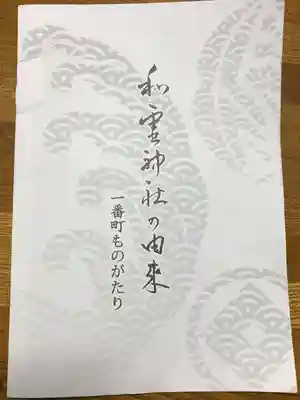 和霊神社の由来
一番町ものがたり